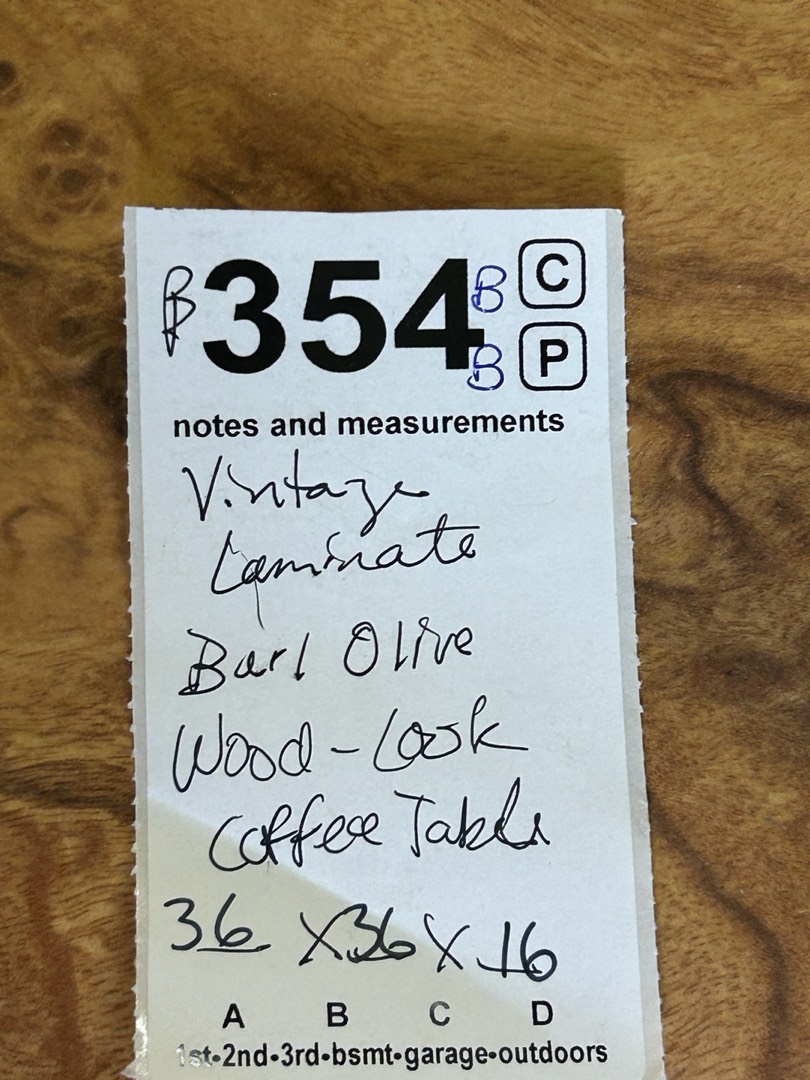 B 354 B C
B P
notes and measurements
Vintage
Laminate
Burl Olive
Wood-Look
Coffee Table
36 x 36 x 16
A B C D
1st•2nd•3rd•bsmt•garage•outdoors